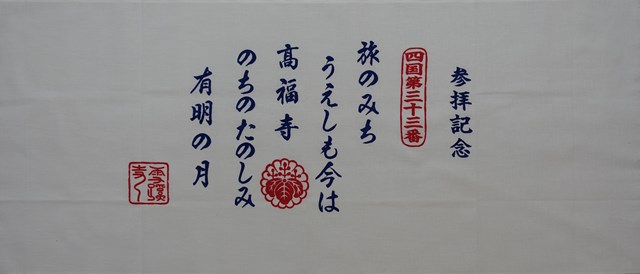 参拝記念
四国第三十三番
旅のみち
うえしも今は
高福寺
のちのたのしみ
有明の月
雪蹊寺